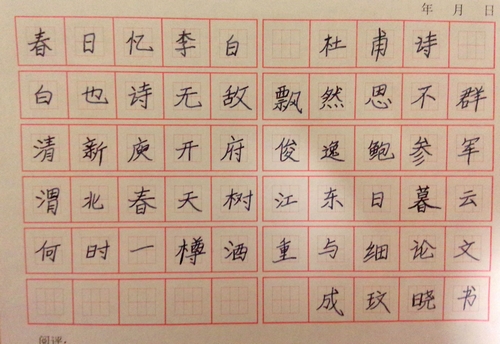 年 月 日
春日忆李白 杜甫诗
白也诗无敌 飘然思不群
清新庾开府 俊逸鲍参军
渭北春天树 江东日暮云
何时一樽酒 重与细论文
成玟晓书
阅评：